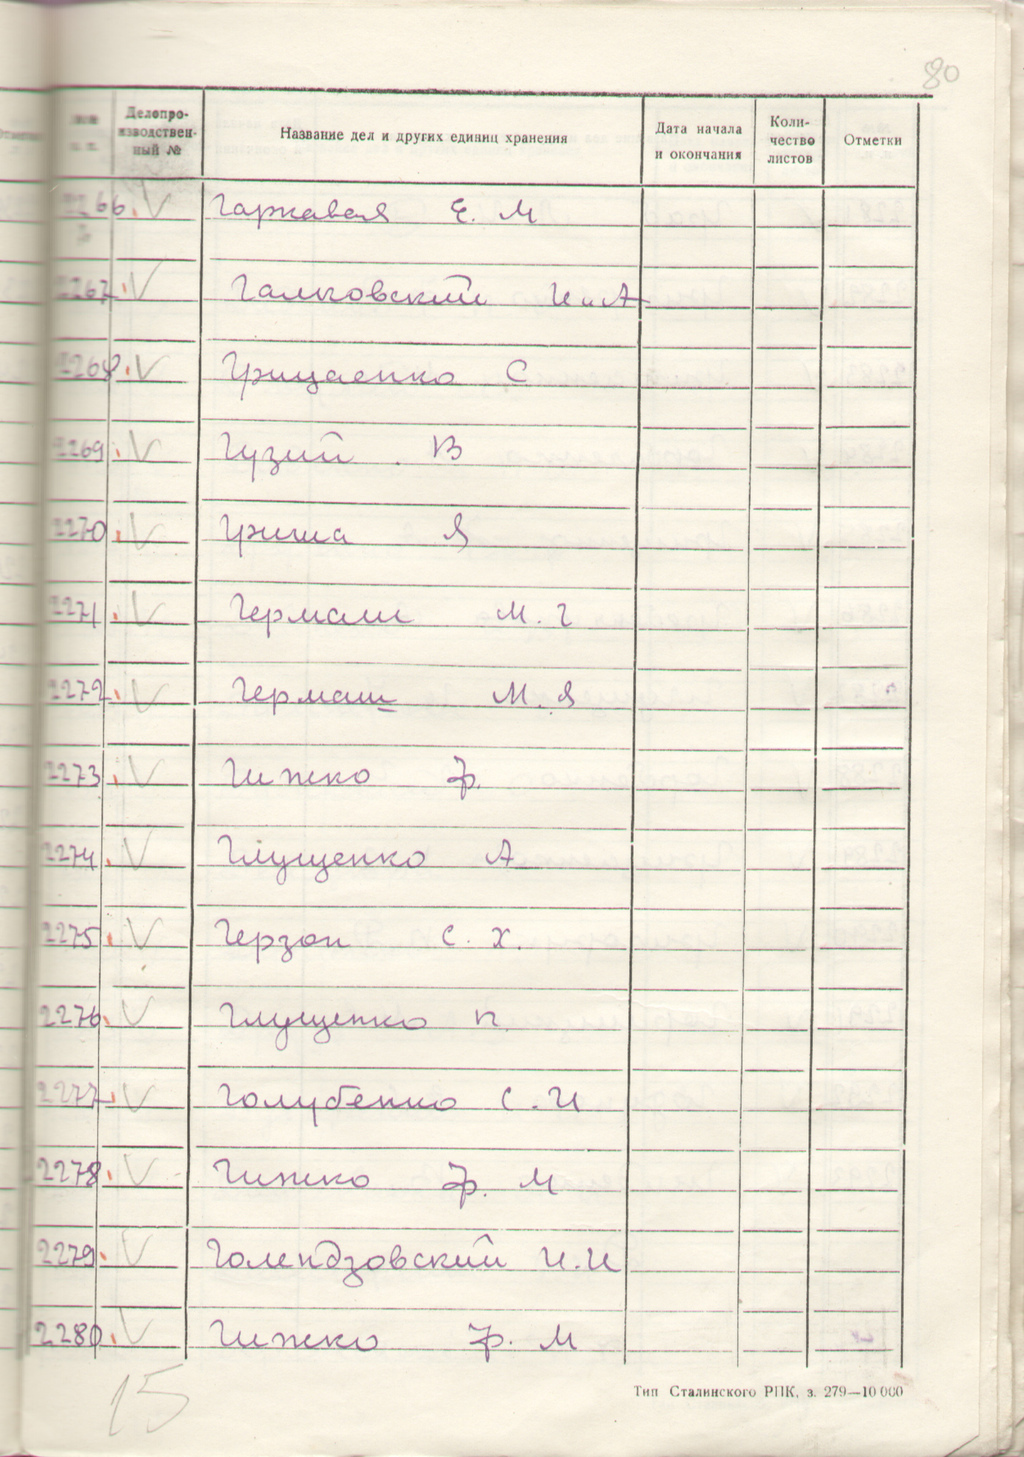 80
Делопро-
изводствен-
ный №
Название дел и других единиц хранения
Дата начала
и окончания
Коли-
чество
листов
Отметки
2266. V Гаркавая Е. М
2267. V Галковский И. А
2268. V Грицаенко С
2269. V Гузий . В
2270. V Гриша Я
2271. V Герман М. Г
2272. V Герман М. Я
2273. V Гижко Ф.
2274. V Глущенко А
2275. V Герзон С. Х.
2276. V Глущенко П.
2277. V Голубенко С. И
2278. V Гижко Ф. М
2279. V Голендзовский И. И
2280. V Гижко Ф. М
15
Тип Сталинского РПК, з. 279—10 000